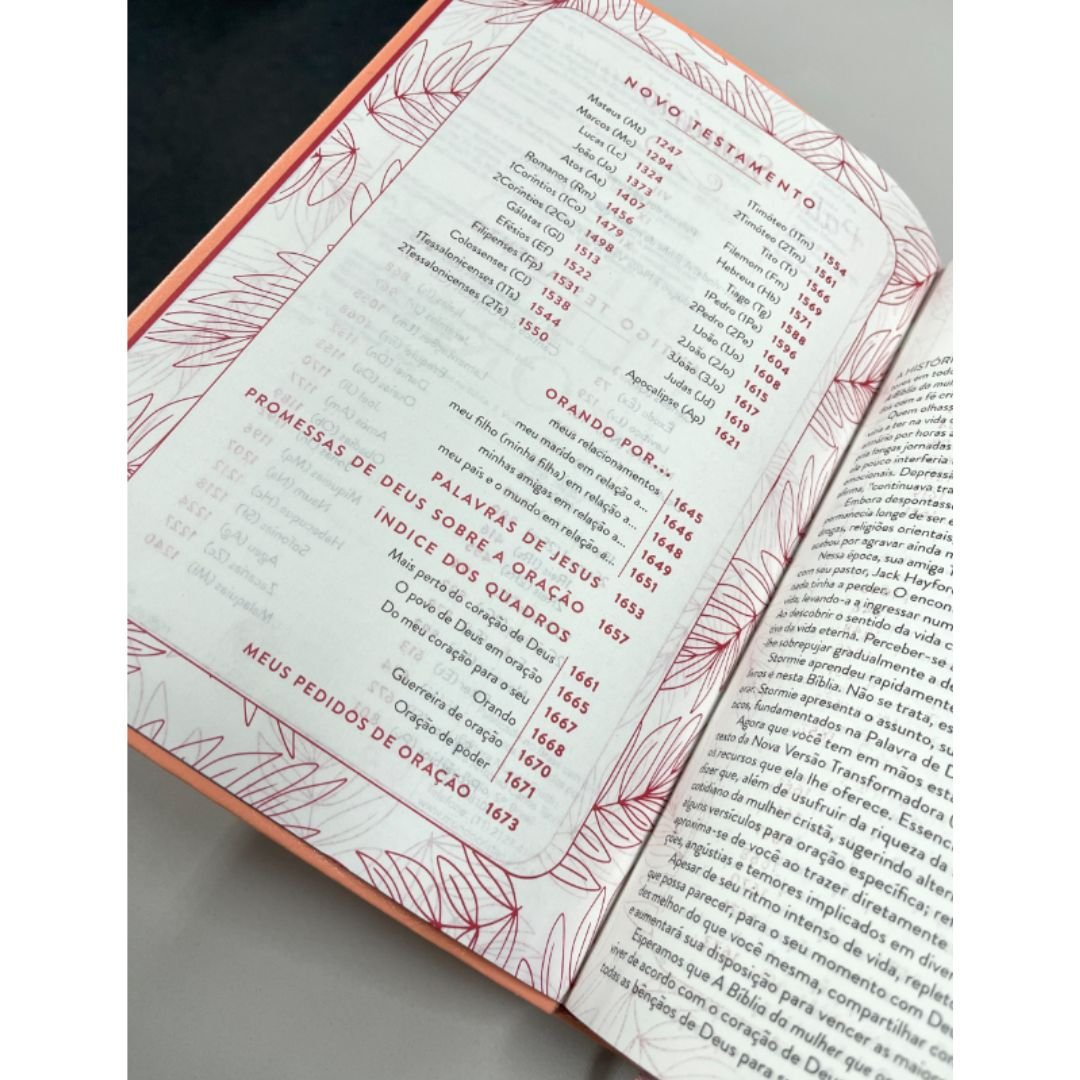 NOVO TESTAMENTO
Mateus (Mt) 1247
Marcos (Mc) 1294
Lucas (Lc) 1324
João (Jo) 1373
Atos (At) 1407
Romanos (Rm) 1456
1Coríntios (1Co) 1479
2Coríntios (2Co) 1498
Gálatas (Gl) 1513
Efésios (Ef) 1522
Filipenses (Fp) 1531
Colossenses (Cl) 1538
1Tessalonicenses (1Ts) 1544
2Tessalonicenses (2Ts) 1550
1Timóteo (1Tm) 1554
2Timóteo (2Tm) 1561
Tito (Tt) 1566
Filemom (Fm) 1569
Hebreus (Hb) 1571
Tiago (Tg) 1588
1Pedro (1Pe) 1596
2Pedro (2Pe) 1604
1João (1Jo) 1608
2João (2Jo) 1615
3João (3Jo) 1617
Judas (Jd) 1619
Apocalipse (Ap) 1621
ORANDO POR...
meus relacionamentos 1645
meu marido em relação a... 1646
meu filho (minha filha) em relação a... 1648
minhas amigas em relação a... 1649
meu país e o mundo em relação a... 1651
PALAVRAS DE JESUS 1653
PROMESSAS DE DEUS SOBRE A ORAÇÃO 1657
ÍNDICE DOS QUADROS
Mais perto do coração de Deus 1661
O povo de Deus em oração 1665
Do meu coração para o seu 1667
Orando 1668
Guerreira de oração 1670
Oração de poder 1671
MEUS PEDIDOS DE ORAÇÃO 1673
A HISTÓRI
em todo
A Bíblia da mul
com a fé cri
Quem olhass
a ter na vida
por horas a
longas jornadas
pouco interferia
emocionais. Depressi
afirma, "continuava tra
Embora despontass
permanecia longe de ser
drogas, religiões orientais
acabou por agravar ainda m
Nessa época, sua amiga T
com seu pastor, Jack Hayfor
nada tinha a perder. O encon
vida, levando-a a ingressar num
Ao descobrir o sentido da vida c
da vida eterna. Perceber-se a
-lhe sobrepujar gradualmente a de
Stormie aprendeu rapidamente
livros e nesta Bíblia. Não se trata, es
orar. Stormie apresenta o assunto, su
ticos, fundamentados na Palavra de D
Agora que você tem em mãos esta
texto da Nova Versão Transformadora (
os recursos que ela lhe oferece. Essenc
dizer que, além de usufruir da riqueza da
cotidiano da mulher cristã, sugerindo alter
alguns versículos para oração específica; ren
aproxima-se de você ao trazer diretamente
ções, angústias e temores implicados em diver
Apesar de seu ritmo intenso de vida, repleto
que possa parecer, para o seu momento com Deu
des melhor do que você mesma, compartilhar con
e aumentará sua disposição para vencer as maior
Esperamos que A Bíblia da mulher que o
viver de acordo com o coração de Deus
todas as bênçãos de Deus para s